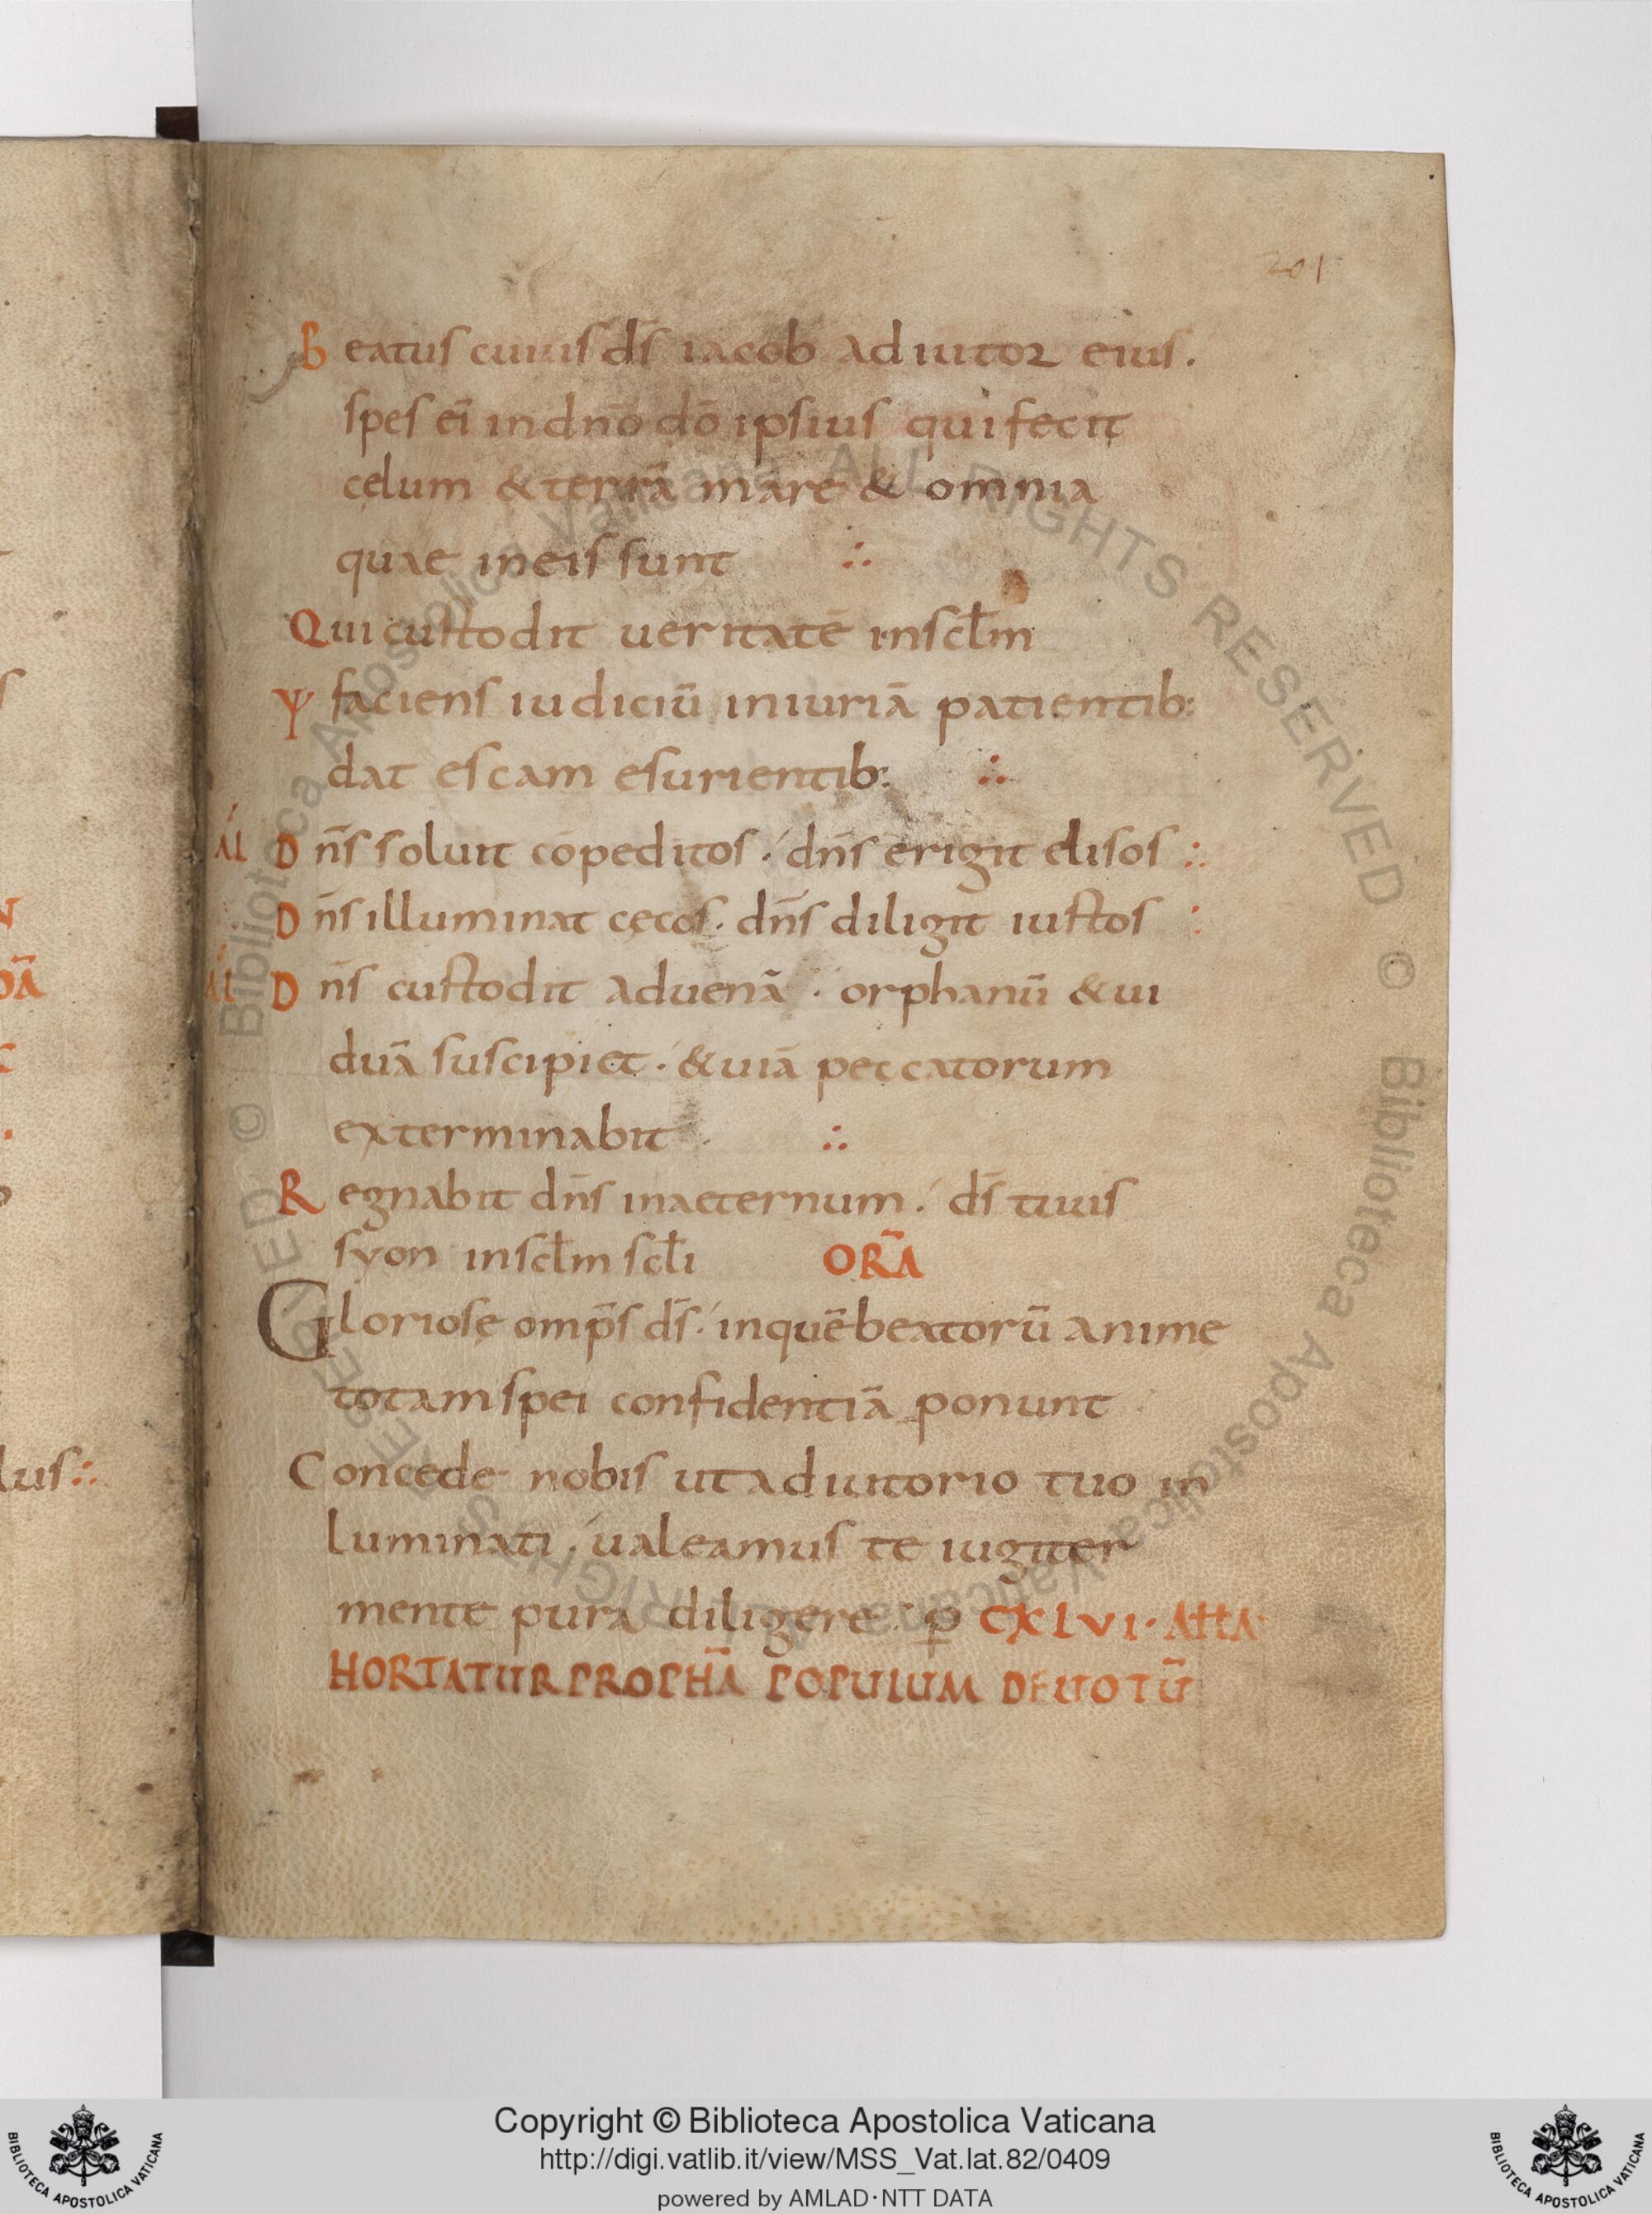 201
Beatus cuius ds̄ iacob adiutor eius.
spes eī in dn̄o dō ipsius qui fecit
celum & terrā mare & omnia
quae in eis sunt ∴
Qui custodit ueritatē in scl̄m
ψ faciens iudiciū iniuriā patientib:
dat escam esurientib: ∴
Al Dn̄s soluit cōpeditos . dn̄s erigit elisos ∴
Dn̄s illuminat cęcos . dn̄s diligit iustos :
Al Dn̄s custodit aduenā . orphanū & ui
duā suscipiet . & uiā peccatorum
exterminabit . ∴
Regnabit dn̄s in aeternum . ds̄ tuus
syon in scl̄m scl̄i ORĀ
Gloriose omp̄s ds̄ . in quē beatorū anime
totam spei confidentiā ponunt
Concede nobis ut adiutorio tuo in
luminati . ualeamus te iugiter
mente pura diligere . p̱ CXLVI · ATTA
HORTATUR PROPHĀ POPULUM DEUOTŪ
N
ŌĀ
lus ∴
© Biblioteca Apostolica Vaticana ALL RIGHTS RESERVED © Biblioteca Apostolica Vaticana ALL RIGHTS RESERVED
Copyright © Biblioteca Apostolica Vaticana
http://digi.vatlib.it/view/MSS_Vat.lat.82/0409
powered by AMLAD·NTT DATA
BIBLIOTECA APOSTOLICA VATICANA
BIBLIOTECA APOSTOLICA VATICANA